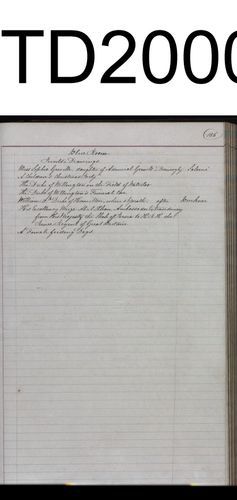 TD2000
106
Blue Room
Framed Drawings
Miss Sophia Granville daughter of Admiral Granville Salomé
A Children's Christmas Party
The Duke of Wellington on the Field of Waterloo
The Duke of Wellington's Funeral Car
William 11th Duke of Hamilton, when a youth after Buckner
His Excellency Mirza Abul Hassan Ambassador Extraordinary
from His Majesty the Shah of Persia to H.R.H. the
Prince Regent of Great Britain
A Female feeding Pigs